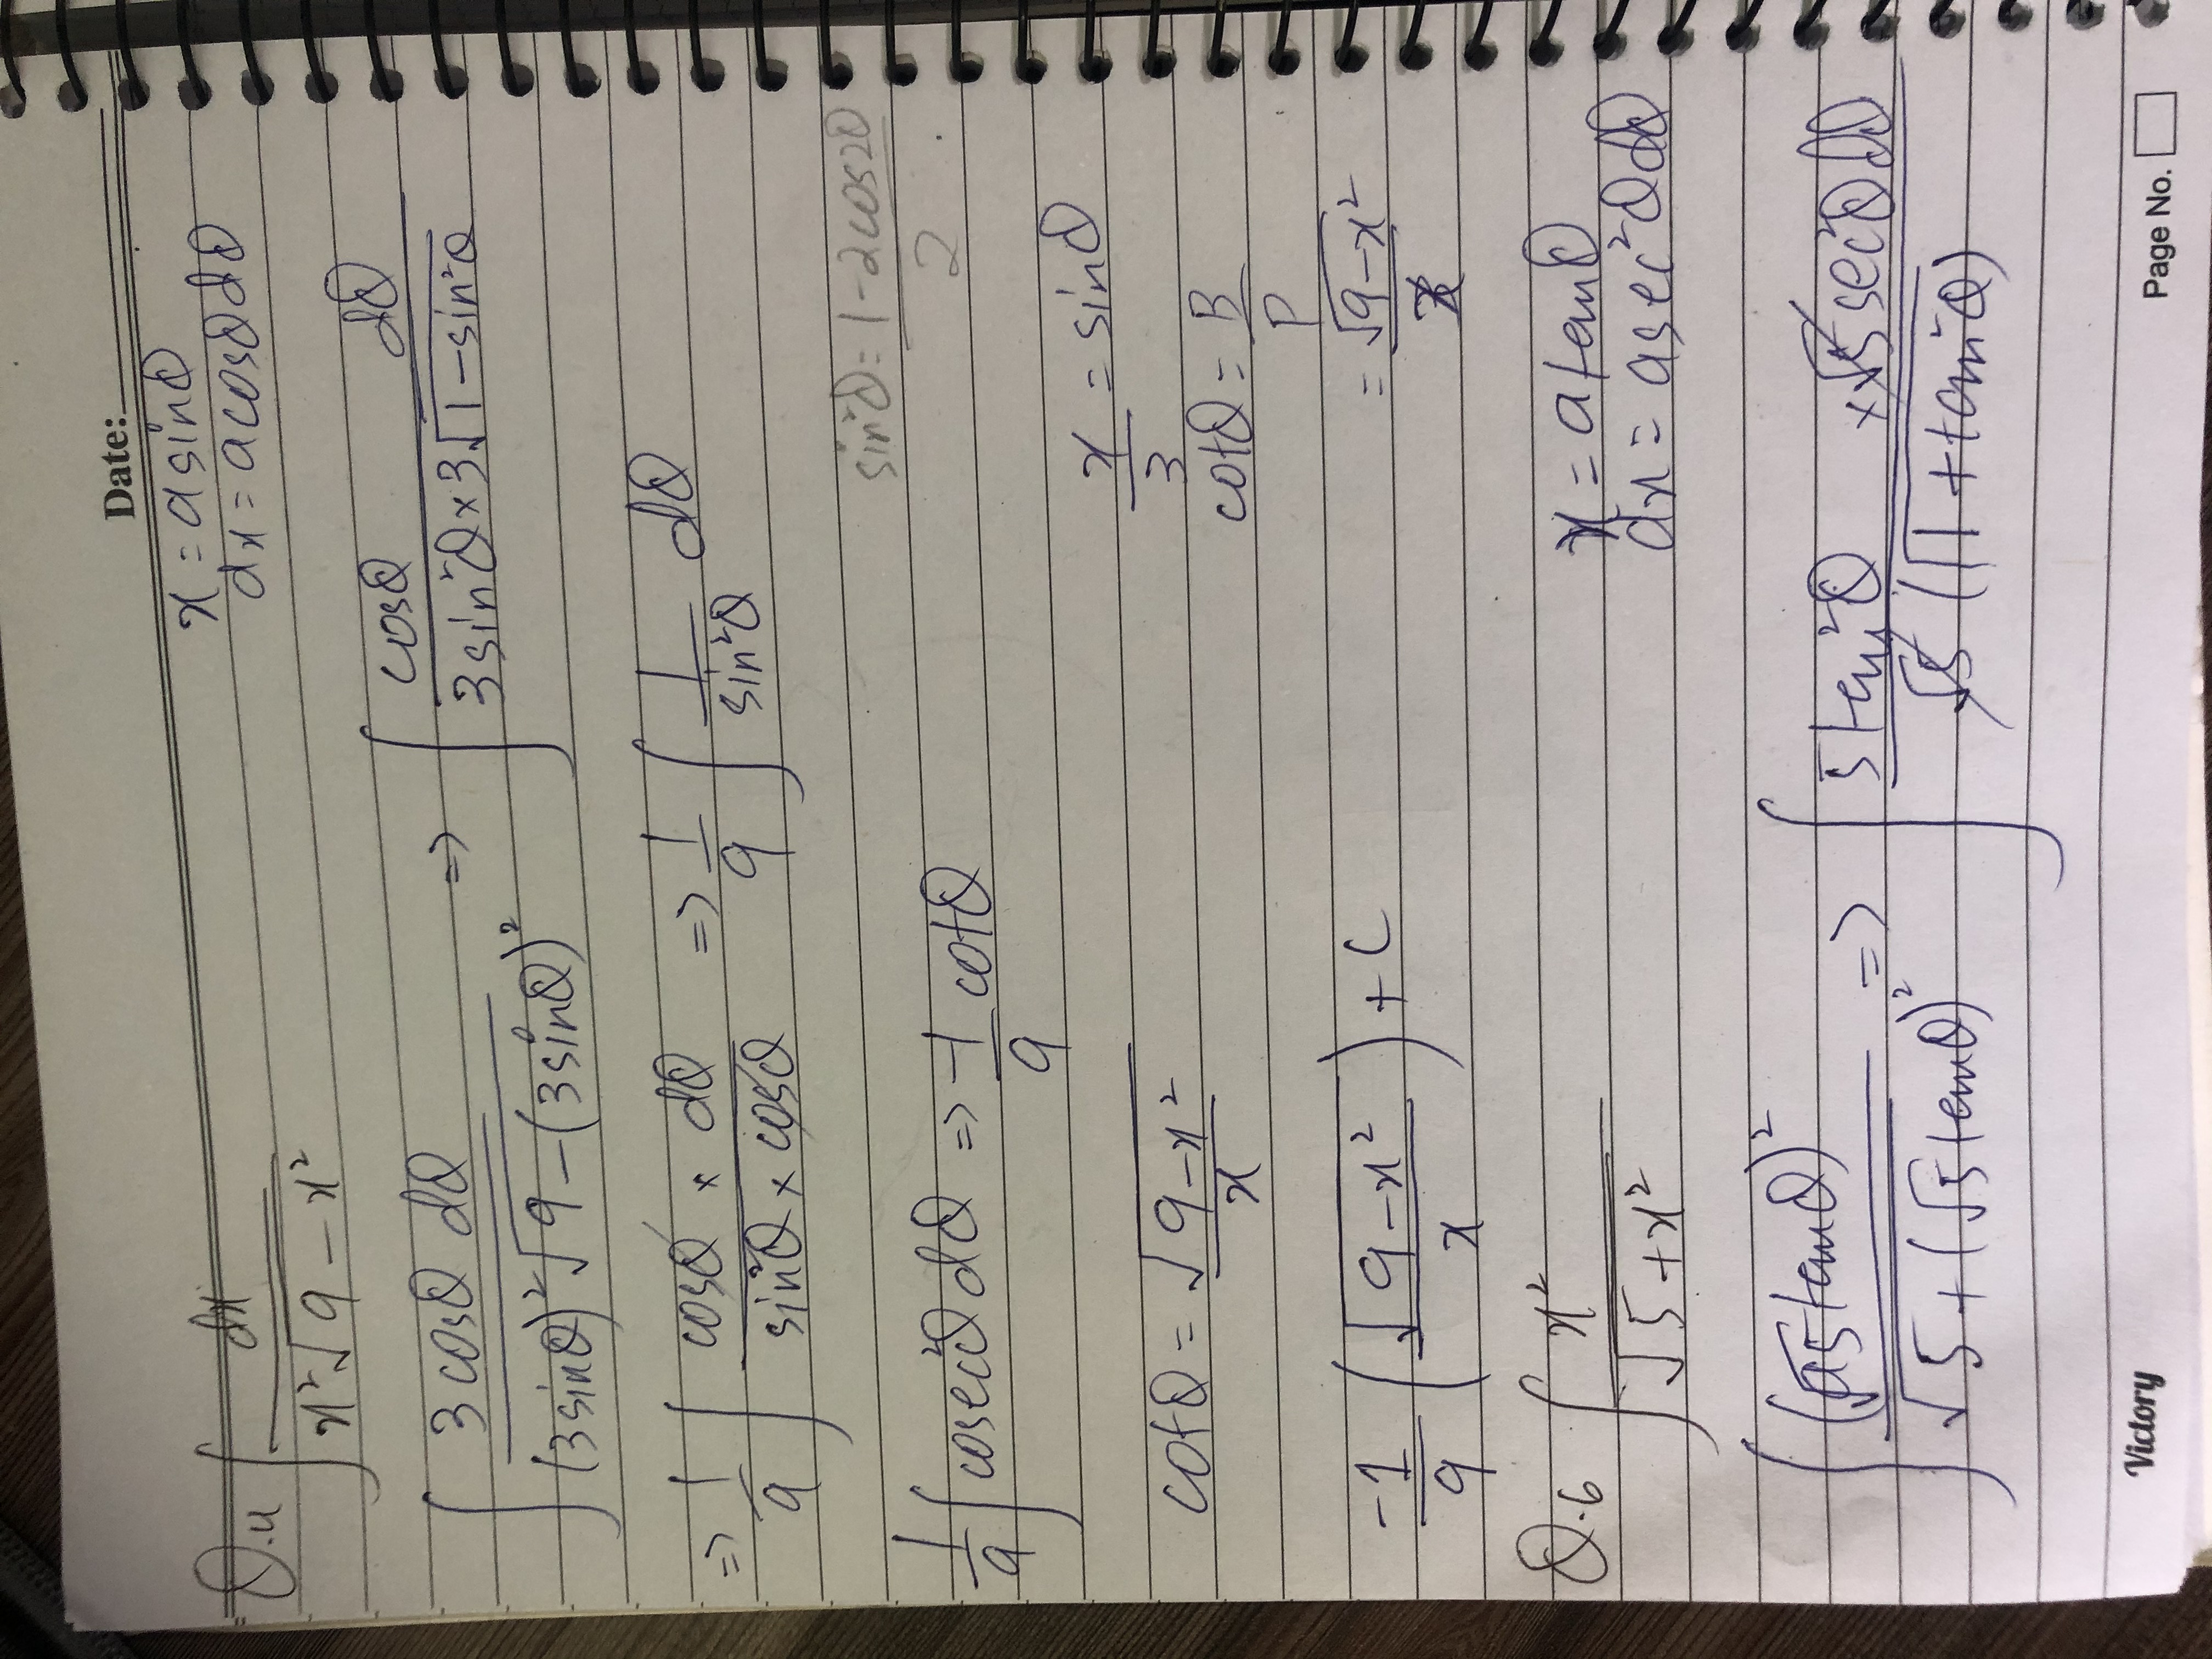 Date:
x = a sinθ
dx = a cosθ dθ
Q.4 ∫ dx / x²√9 − x²
∫ 3 cosθ dθ / (3 sinθ)² √9 − (3 sinθ)² => ∫ cosθ dθ / 3 sin²θ × 3√1 − sin²θ
=> 1/9 ∫ cosθ × dθ / sin²θ × cosθ => 1/9 ∫ 1 / sin²θ dθ
sin²θ = 1 − 2cos2θ / 2
1/9 ∫ cosec²θ dθ => −1/9 cotθ
x/3 = sinθ
cotθ = √9 − x² / x
cotθ = B/P
= √9 − x² / x
−1/9 (√9 − x² / x) + C
Q.6 ∫ x² / √5 + x²
x = a tanθ
dx = a sec²θ dθ
∫ (√5 tanθ)² / √5 + (√5 tanθ)² => ∫ 5 tan²θ × √5 sec²θ dθ / √5 (√1 + tan²θ)
Victory
Page No.